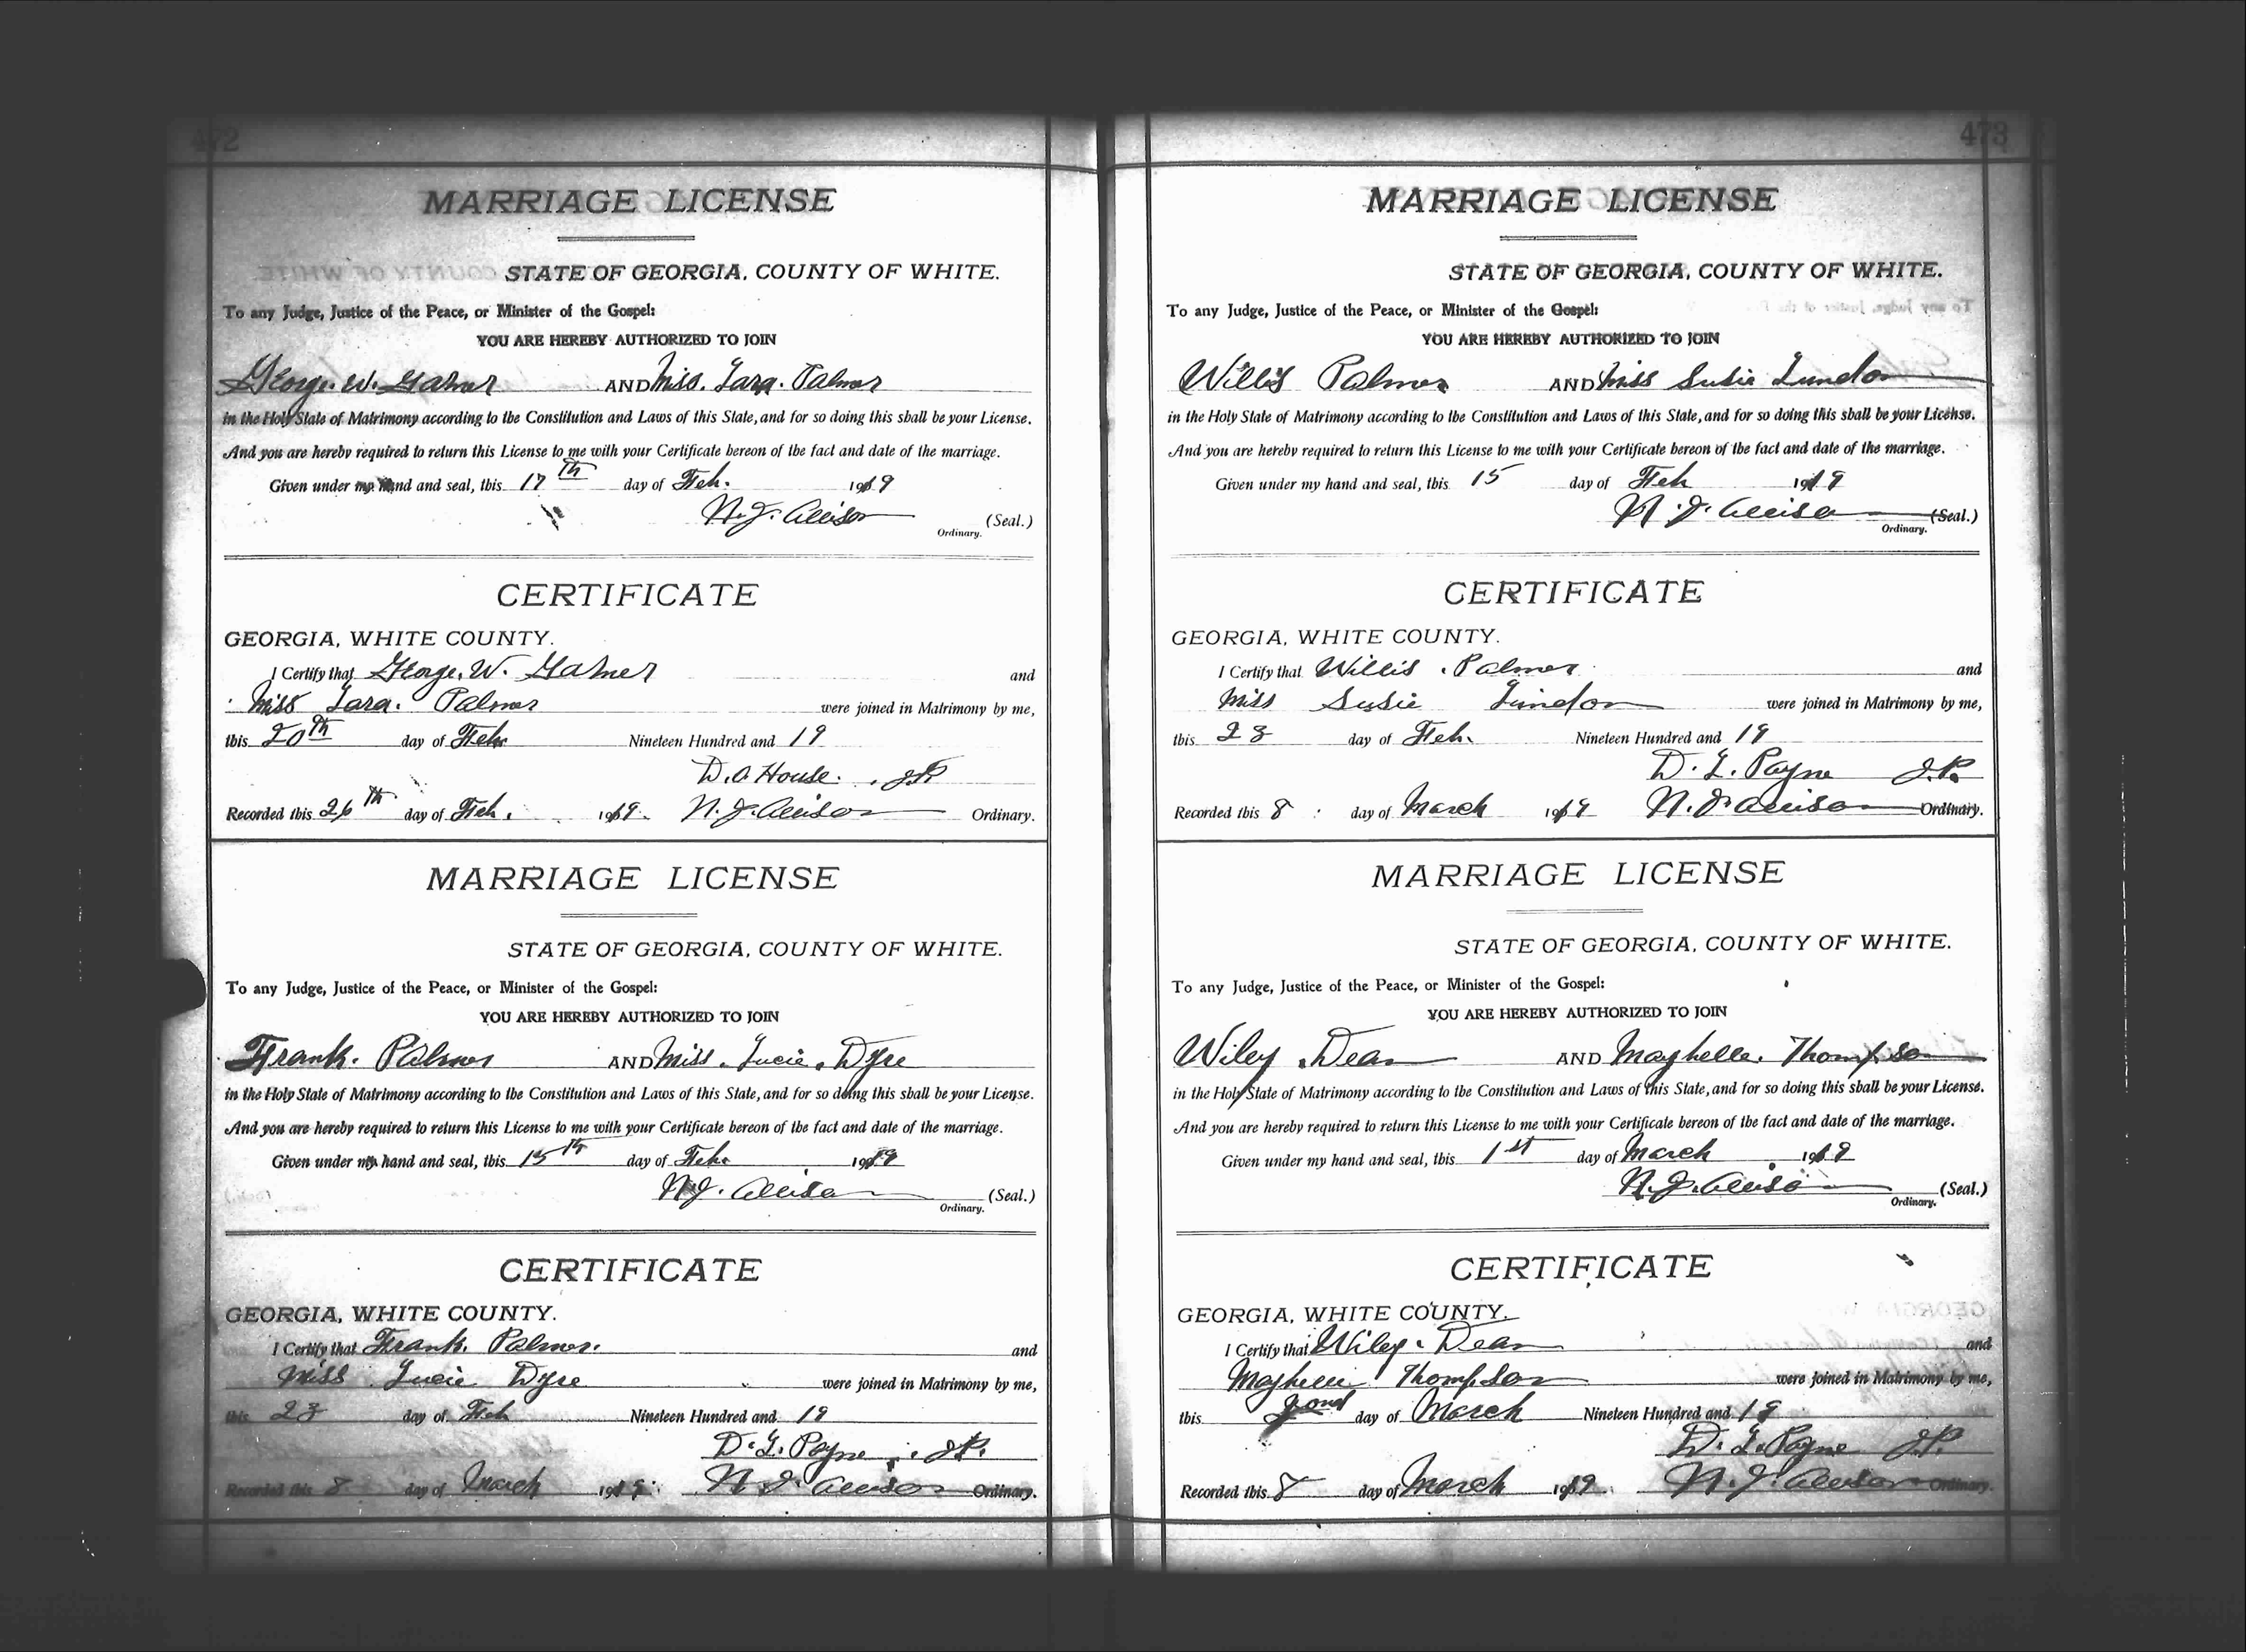 472
MARRIAGE LICENSE
STATE OF GEORGIA, COUNTY OF WHITE.
To any Judge, Justice of the Peace, or Minister of the Gospel:
YOU ARE HEREBY AUTHORIZED TO JOIN
George. W. AND Miss. Palmer
in the Holy State of Matrimony according to the Constitution and Laws of this State, and for so doing this shall be your License.
And you are hereby required to return this License to me with your Certificate hereon of the fact and date of the marriage.
Given under my hand and seal, this 17th day of Feb. 1919
N. J. Allison (Seal.)
Ordinary.
CERTIFICATE
GEORGIA, WHITE COUNTY.
I Certify that George. W. and
Miss Palmer were joined in Matrimony by me,
this 20th day of Feb. Nineteen Hundred and 19
D. A. House. J.P.
Recorded this 26th day of Feb. 1919. N. J. Allison Ordinary.
MARRIAGE LICENSE
STATE OF GEORGIA, COUNTY OF WHITE.
To any Judge, Justice of the Peace, or Minister of the Gospel:
YOU ARE HEREBY AUTHORIZED TO JOIN
Frank. Palmer AND Miss. Lucie. Dyre
in the Holy State of Matrimony according to the Constitution and Laws of this State, and for so doing this shall be your License.
And you are hereby required to return this License to me with your Certificate hereon of the fact and date of the marriage.
Given under my hand and seal, this 15th day of Feb. 1919
N. J. Allison (Seal.)
Ordinary.
CERTIFICATE
GEORGIA, WHITE COUNTY.
I Certify that Frank. Palmer. and
Miss Lucie Dyre were joined in Matrimony by me,
this 23 day of Feb Nineteen Hundred and 19
D. L. Payne J.P.
Recorded this 8 day of March 1919. N. J. Allison Ordinary.
473
MARRIAGE LICENSE
STATE OF GEORGIA, COUNTY OF WHITE.
To any Judge, Justice of the Peace, or Minister of the Gospel:
YOU ARE HEREBY AUTHORIZED TO JOIN
Willis Palmer AND Miss Susie Lundon
in the Holy State of Matrimony according to the Constitution and Laws of this State, and for so doing this shall be your License.
And you are hereby required to return this License to me with your Certificate hereon of the fact and date of the marriage.
Given under my hand and seal, this 15 day of Feb 1919
N. J. Allison (Seal.)
Ordinary.
CERTIFICATE
GEORGIA, WHITE COUNTY.
I Certify that Willis Palmer and
Miss Susie Lindon were joined in Matrimony by me,
this 23 day of Feb. Nineteen Hundred and 19
D. L. Payne J.P.
Recorded this 8 day of March 1919 N. J. Allison Ordinary.
MARRIAGE LICENSE
STATE OF GEORGIA, COUNTY OF WHITE.
To any Judge, Justice of the Peace, or Minister of the Gospel:
YOU ARE HEREBY AUTHORIZED TO JOIN
Wiley Dean AND Maybelle. Thompson
in the Holy State of Matrimony according to the Constitution and Laws of this State, and for so doing this shall be your License.
And you are hereby required to return this License to me with your Certificate hereon of the fact and date of the marriage.
Given under my hand and seal, this 1st day of March 1919
N. J. Allison (Seal.)
Ordinary.
CERTIFICATE
GEORGIA, WHITE COUNTY.
I Certify that Wiley. Dean and
Maybelle Thompson were joined in Matrimony by me,
this 2ond day of March Nineteen Hundred and 19
D. L. Payne J.P.
Recorded this 8 day of March 1919. N. J. Allison Ordinary.